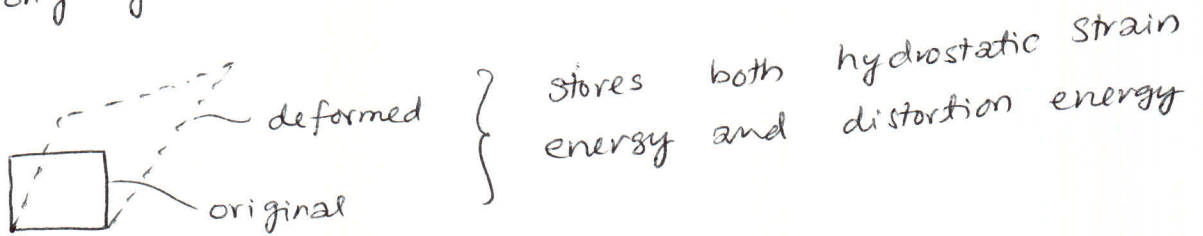 deformed
original
stores both hydrostatic strain
energy and distortion energy